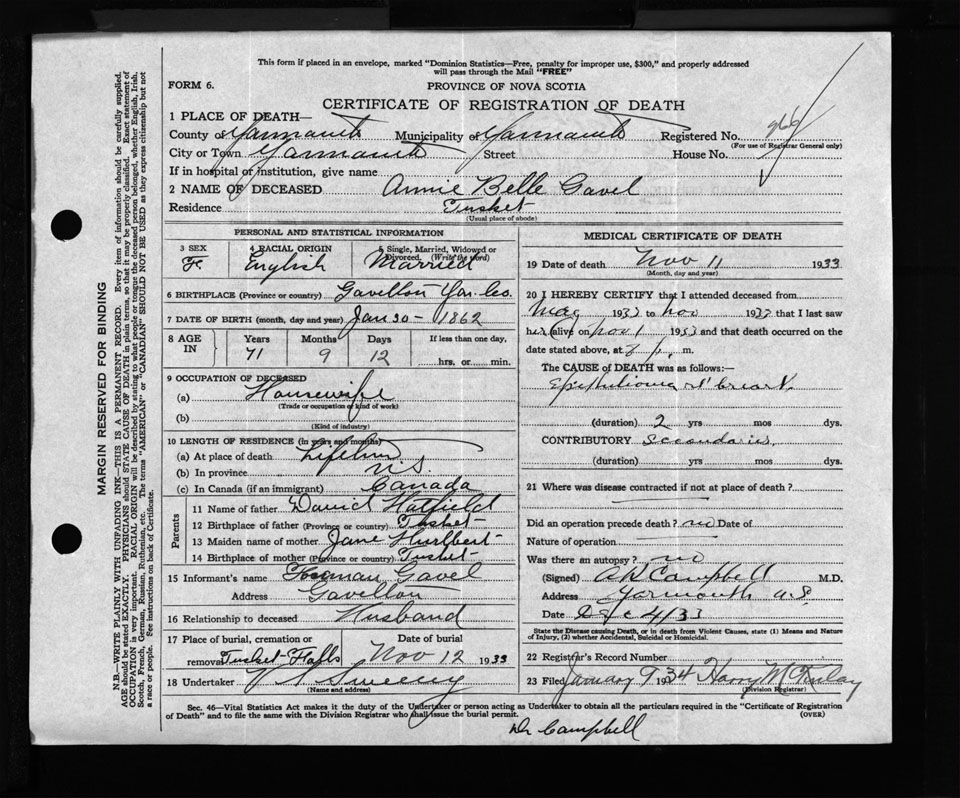 This form if placed in an envelope, marked "Dominion Statistics—Free, penalty for improper use, $300," and properly addressed
will pass through the Mail "FREE"
FORM 6.
PROVINCE OF NOVA SCOTIA
CERTIFICATE OF REGISTRATION OF DEATH
1 PLACE OF DEATH—
County of Yarmouth Municipality of Yarmouth Registered No.
(For use of Registrar General only)
City or Town Yarmouth Street House No.
If in hospital or institution, give name
2 NAME OF DECEASED Annie Belle Gavel
Residence Tusket
(Usual place of abode)
PERSONAL AND STATISTICAL INFORMATION
3 SEX 4 RACIAL ORIGIN 5 Single, Married, Widowed or
Divorced. (Write the word)
F. English Married
6 BIRTHPLACE (Province or country) Gavelton Yar. Co.
7 DATE OF BIRTH (month, day and year) Jan 30 - 1862
8 AGE IN Years Months Days If less than one day,
71 9 12 hrs. or min.
9 OCCUPATION OF DECEASED
(a) Housewife
(Trade or occupation or kind of work)
(b)
(Kind of industry)
10 LENGTH OF RESIDENCE (in years and months)
(a) At place of death Lifetime
(b) In province N.S.
(c) In Canada (if an immigrant) Canada
Parents
11 Name of father David Hatfield
12 Birthplace of father (Province or country) Tusket
13 Maiden name of mother Jane Hurlbert
14 Birthplace of mother (Province or country) Tusket
15 Informant's name Gavel
Address Gavelton
16 Relationship to deceased Husband
17 Place of burial, cremation or Date of burial
removal Tusket Falls Nov 12 1933
18 Undertaker Sweeny
(Name and address)
MEDICAL CERTIFICATE OF DEATH
19 Date of death Nov 11 1933
(Month, day and year)
20 I HEREBY CERTIFY that I attended deceased from
May 1933 to Nov 1933 that I last saw
her alive on Nov 1 1933 and that death occurred on
date stated above, at 8 p. m.
The CAUSE OF DEATH was as follows:—
Epithelioma of breast
(duration) 2 yrs mos dys.
CONTRIBUTORY Secondaries
(duration) yrs. mos dys.
21 Where was disease contracted if not at place of death?
Did an operation precede death? no Date of
Nature of operation
Was there an autopsy? no
(Signed) Campbell M.D.
Address Yarmouth N.S.
Date Dec 4/33
State the Disease causing Death, or in death from Violent Causes, state (1) Means and Nature
of Injury, (2) whether Accidental, Suicidal or Homicidal.
22 Registrar's Record Number
23 Filed January 9 1934 Harry McKinlay
(Division Registrar)
Sec. 46—Vital Statistics Act makes it the duty of the Undertaker or person acting as Undertaker to obtain all the particulars required in the "Certificate of Registration
of Death" and to file the same with the Division Registrar who shall issue the burial permit. (OVER)
Dr Campbell
MARGIN RESERVED FOR BINDING
N.B.—WRITE PLAINLY WITH UNFADING INK—THIS IS A PERMANENT RECORD. Every item of information should be carefully supplied.
AGE should be stated EXACTLY. PHYSICIANS should STATE CAUSE OF DEATH in plain terms, so that it may be properly classified. Exact statement of
OCCUPATION is very important. RACIAL ORIGIN will be described by stating to what people or tongue the deceased person belonged, whether English, Irish,
Scotch, French, German, Russian, Ruthenian, etc. The terms "AMERICAN" or "CANADIAN" SHOULD NOT BE USED as they express citizenship but not
a race or people. See instructions on back of Certificate.